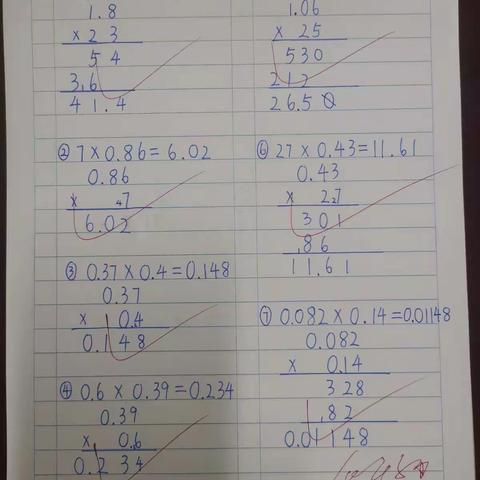 1.8
× 2 3
5 4
3.6
4 1.4
② 7 × 0.86 = 6.02
0.86
× 47
6.02
③ 0.37 × 0.4 = 0.148
0.37
× 0.4
0.1 4 8
④ 0.6 × 0.39 = 0.234
0.39
× 0.6
0.2 3 4
1.06
× 25
530
212
26.50
⑥ 27 × 0.43 = 11.61
0.43
× 227
301
86
11.61
⑦ 0.082 × 0.14 = 0.01148
0.082
× 0.14
328
82
0.01148